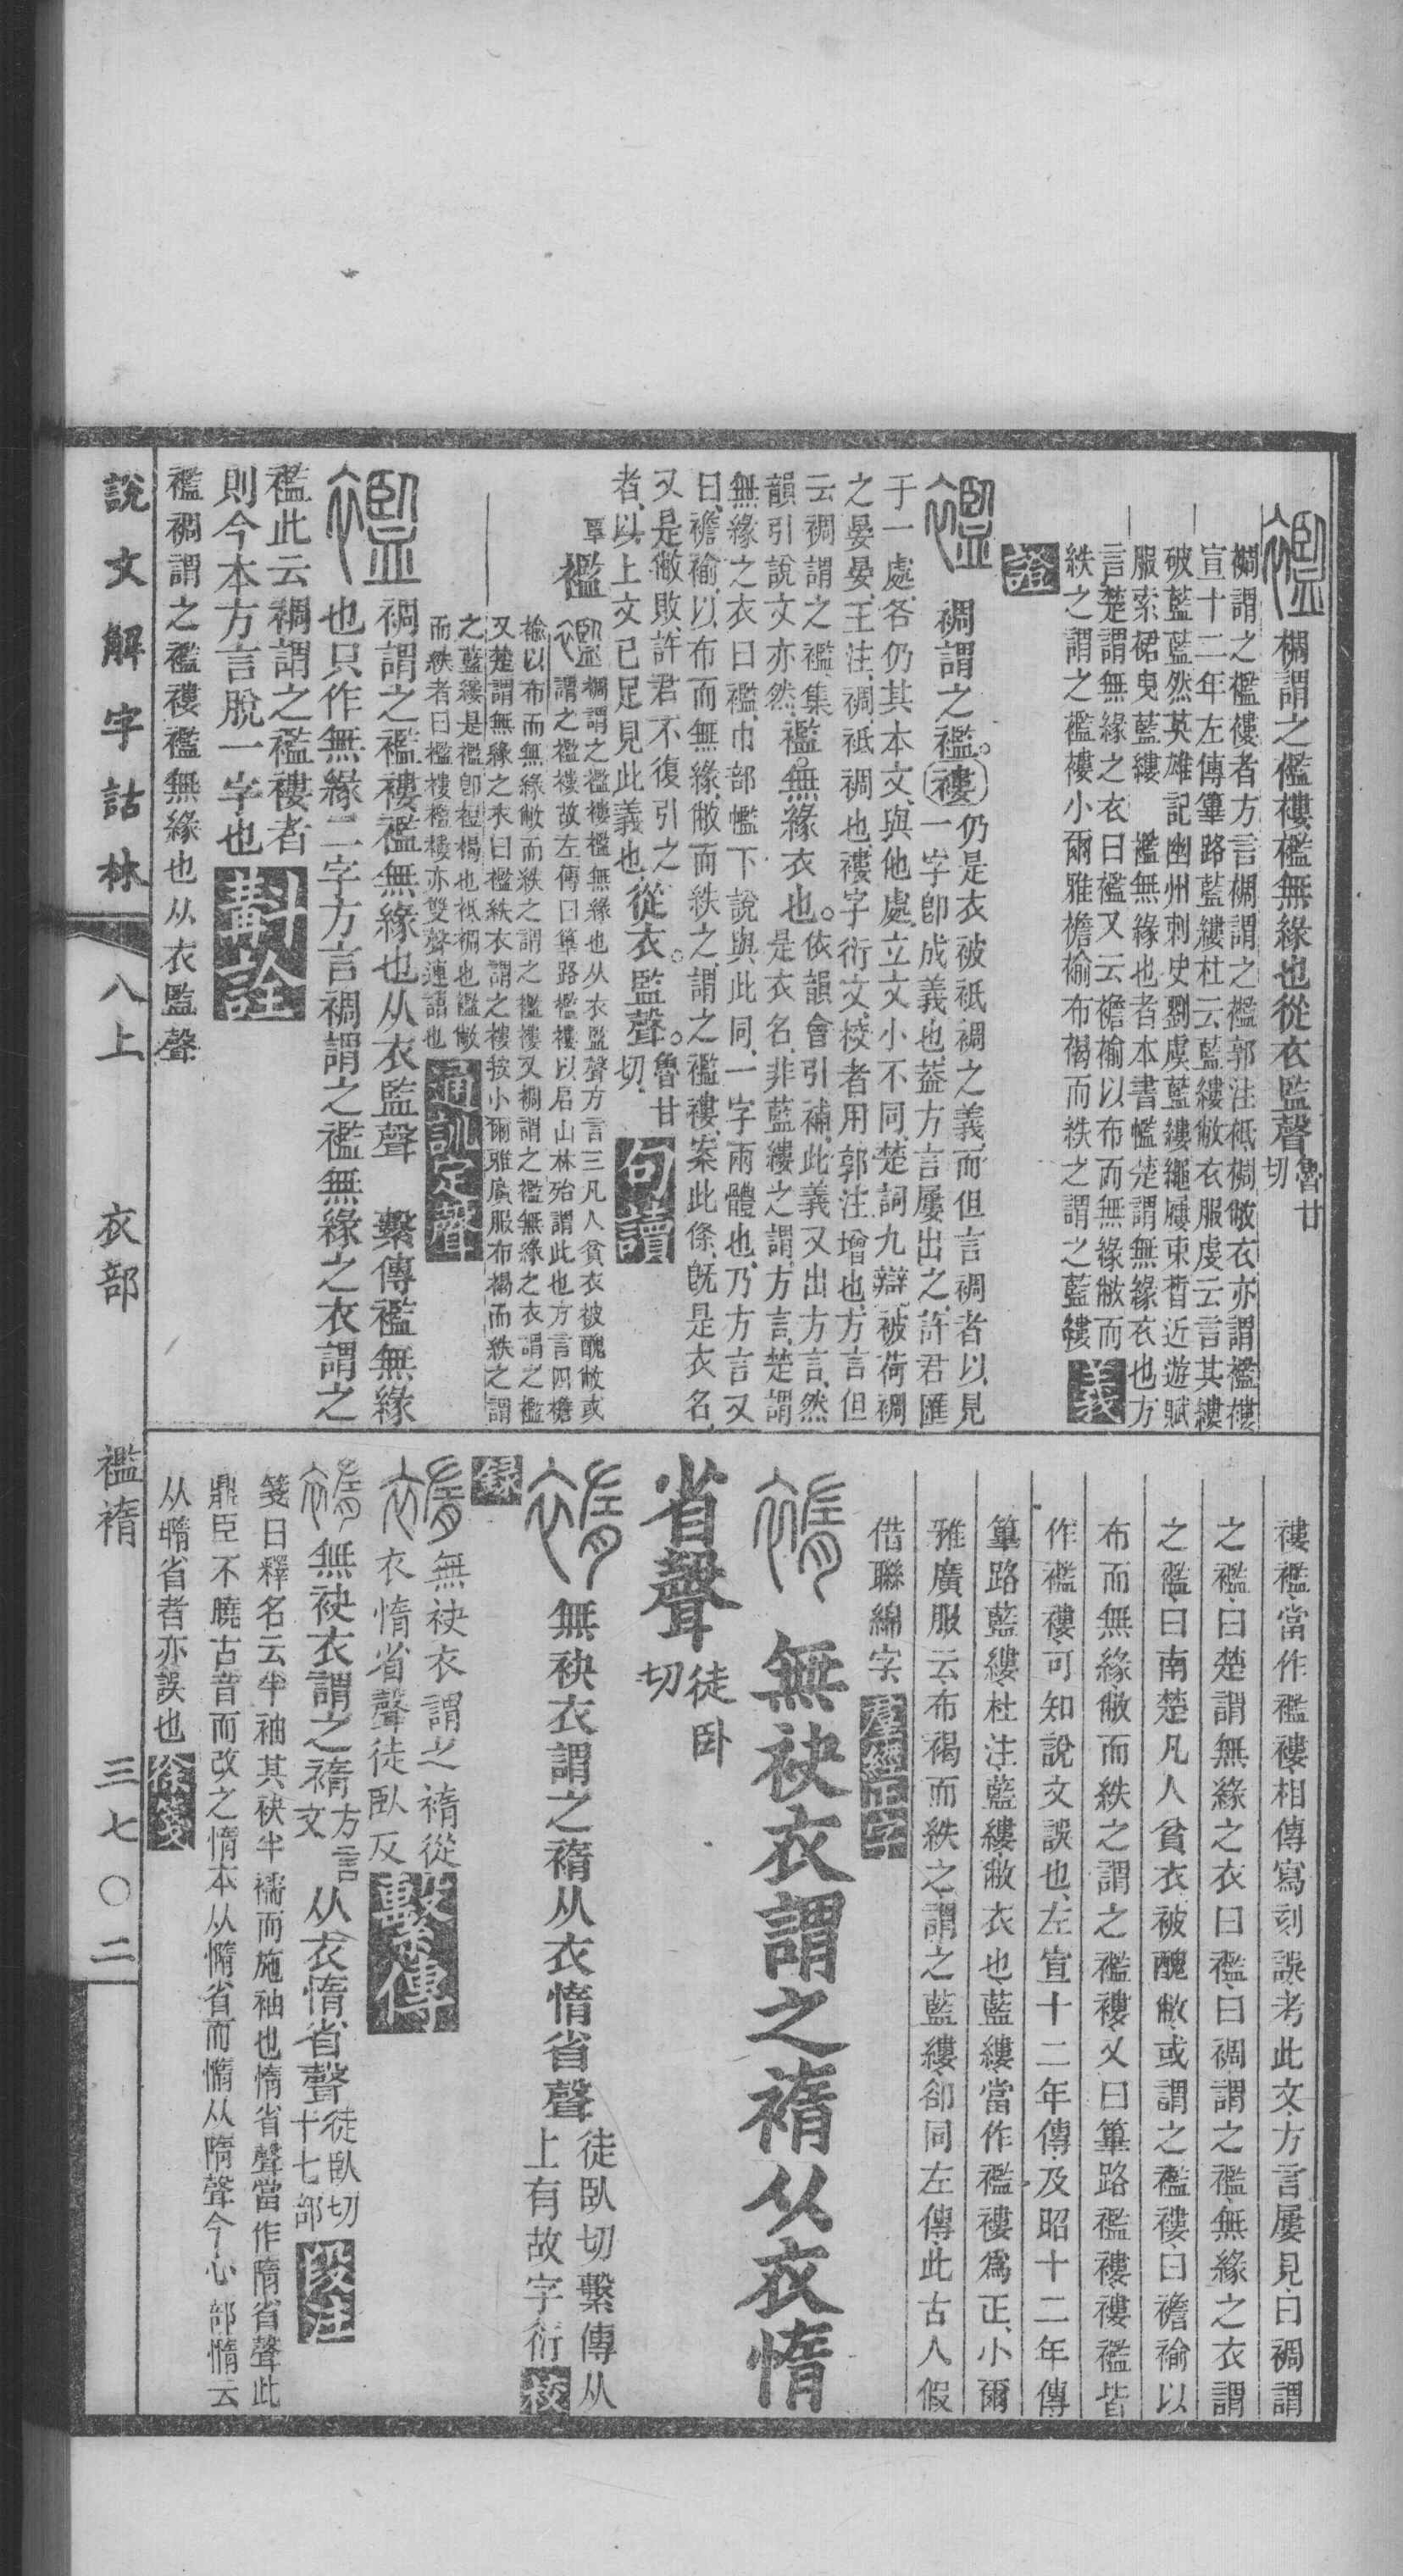 裯謂之襤褸襤無緣也從衣監聲魯甘切
裯謂之襤褸者方言裯謂之襤郭注祗裯敝衣亦謂襤褸
宣十二年左傳篳路藍縷杜云藍縷敝衣服虔云言其縷
破藍藍然英雄記幽州刺史劉虞藍縷繩屨束晳近遊賦
服索裙曳藍縷 襤無緣也者本書㡓楚謂無緣衣也方
言楚謂無緣之衣曰襤又云襜褕以布而無緣敝而
紩之謂之襤褸小爾雅襜褕布褐而紩之謂之藍縷義
證
裯謂之襤褸仍是衣被祗裯之義而但言裯者以見
一字卽成義也葢方言屢出之許君匯
于一處各仍其本文與他處立文小不同楚詞九辯被荷裯
之晏晏王注裯祗裯也褸字衍文挍者用郭注增也方言但
云裯謂之襤集襤無緣衣也依韻會引補此義又出方言然
韻引說文亦然 是衣名非藍縷之謂方言楚謂
無緣之衣曰襤巾部㡓下說與此同一字兩體也乃方言又
曰襜褕以布而無緣敝而紩之謂之襤褸案此條旣是衣名
又是敝敗許君不復引之
者以上文已足見此義也從衣監聲魯甘切句讀
覃襤裯謂之襤褸襤無緣也从衣監聲方言三凡人貧衣被醜敝或
謂之襤褸故左傳曰篳路襤褸以启山林殆謂此也方言四襜
褕以布而無緣敝而紩之謂之襤褸又裯謂之襤無緣之衣謂之襤
又楚謂無緣之衣曰襤紩衣謂之褸按小爾雅廣服布褐而紩之謂
之藍縷是襤卽裎裼也祗裯也襤敝
而紩者曰襤褸襤褸亦雙聲連語也通訓定聲
裯謂之襤褸襤無緣也从衣監聲 繫傳襤無緣
也只作無緣二字方言裯謂之襤無緣之衣謂之
襤此云裯謂之襤褸者
則今本方言脫一字也斠詮
襤裯謂之襤褸襤無緣也从衣監聲
褸襤當作襤褸相傳寫刻誤考此文方言屢見曰裯謂
之襤曰楚謂無緣之衣曰襤曰裯謂之襤無緣之衣謂
之襤曰南楚凡人貧衣被醜敝或謂之襤褸曰襜褕以
布而無緣敝而紩之謂之襤褸又曰篳路襤褸褸襤皆
作襤褸可知說文誤也左宣十二年傳及昭十二年傳
篳路藍縷杜注藍縷敝衣也藍縷當作襤褸爲正小爾
雅廣服云布褐而紩之謂之藍縷卻同左傳此古人假
借聯綿字羣經正字
無袂衣謂之䙐从衣惰
省聲徒卧切
無袂衣謂之䙐从衣惰省聲徒臥切繫傳从
上有故字衍校
錄
無袂衣謂之䙐從
衣惰省聲徒臥反繫傳
無袂衣謂之䙐方言文从衣惰省聲徒臥切十七部段注
箋曰釋名云半袖其袂半襦而施袖也惰省聲當作隋省聲此
鼎臣不曉古音而改之惰本从憜省而憜从隋聲今心部惰云
从嶞省者亦誤也徐箋
說文解字詁林 八上 衣部 襤䙐 三七〇二